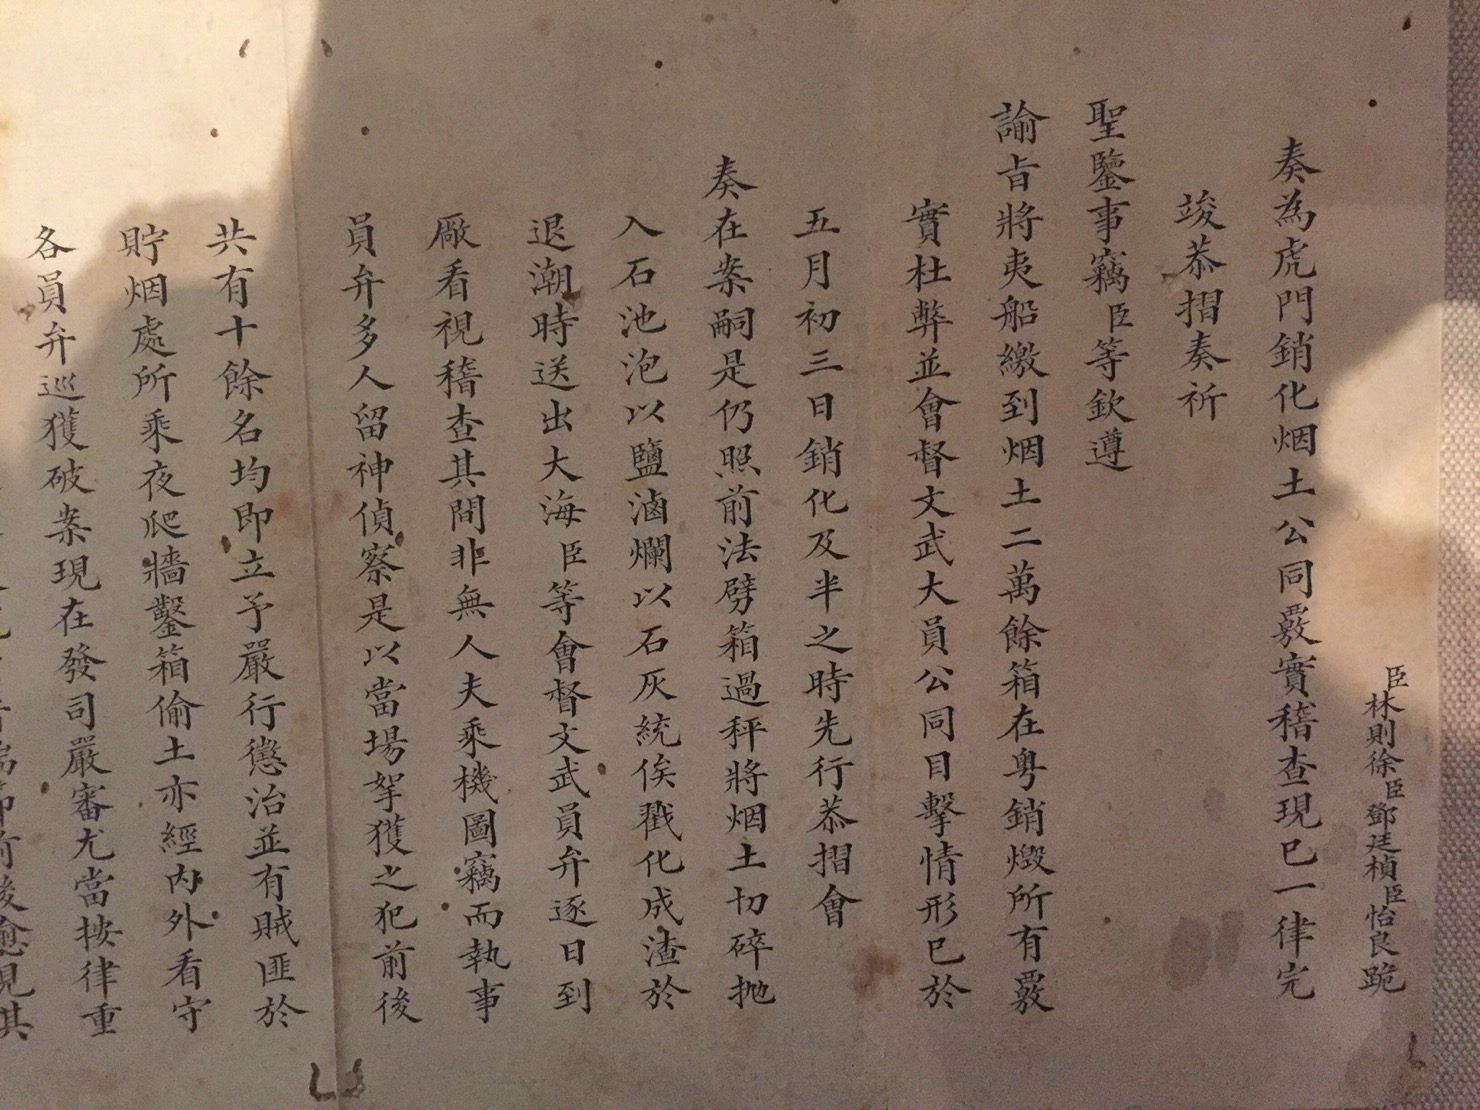 臣林則徐臣鄧廷楨臣怡良跪
奏為虎門銷化烟土公同覈實稽查現已一律完
竣恭摺奏祈
聖鑒事竊臣等欽遵
諭旨將夷船繳到烟土二萬餘箱在粵銷燬所有覈
實杜弊並會督文武大員公同目擊情形已於
五月初三日銷化及半之時先行恭摺會
奏在案嗣是仍照前法劈箱過秤將烟土切碎拋
入石池泡以鹽滷爛以石灰統俟戳化成渣於
退潮時送出大海臣等會督文武員弁逐日到
廠看視稽查其間非無人夫乘機圖竊而執事
員弁多人留神偵察是以當場拏獲之犯前後
共有十餘名均即立予嚴行懲治並有賊匪於
貯烟處所乘夜爬牆鑿箱偷土亦經內外看守
各員弁巡獲破案現在發司嚴審尤當按律重
前後愈見其